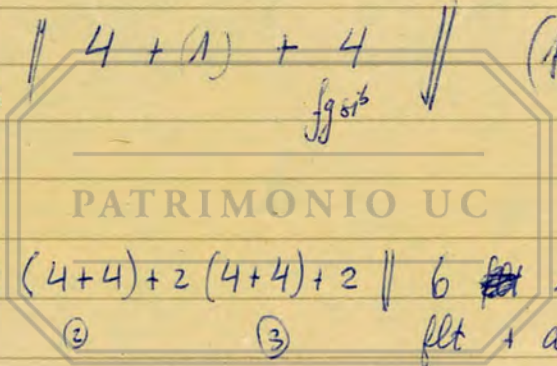 || 4 + (1) + 4 || (
PATRIMONIO UC
(4+4)+2 (4+4)+2 || 6
② ③ flt +